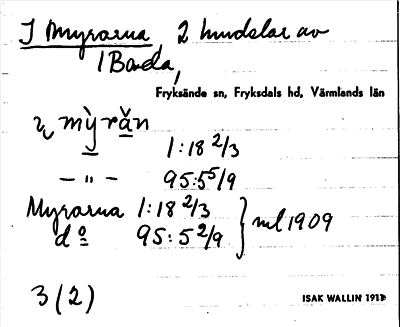 I Myrarna, 2 hemdelar av
1 Borda,
Fryksände sn, Fryksdals hd, Värmlands län
mỳrăn
1:18 2/3
– " – 95:5 5/9
Myrarna 1:18 2/3
do 95:5 2/9 } ml 1909
3 (2)
ISAK WALLIN 191